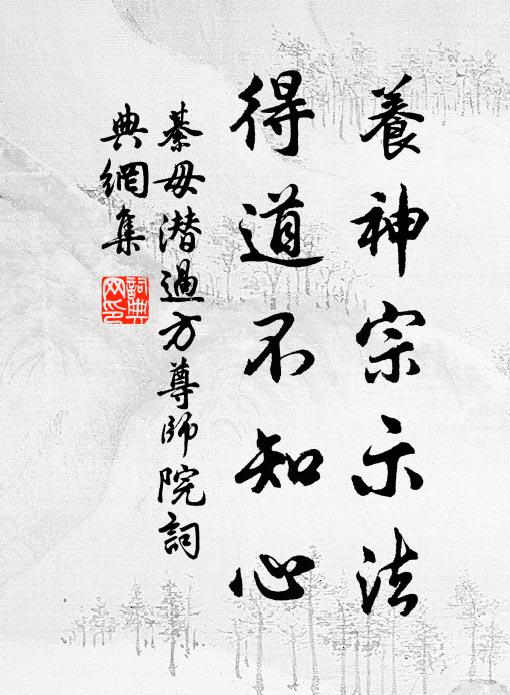 養神宗示法
得道不知心
綦毋潛過方尊師院詞
典網集
詞典網印